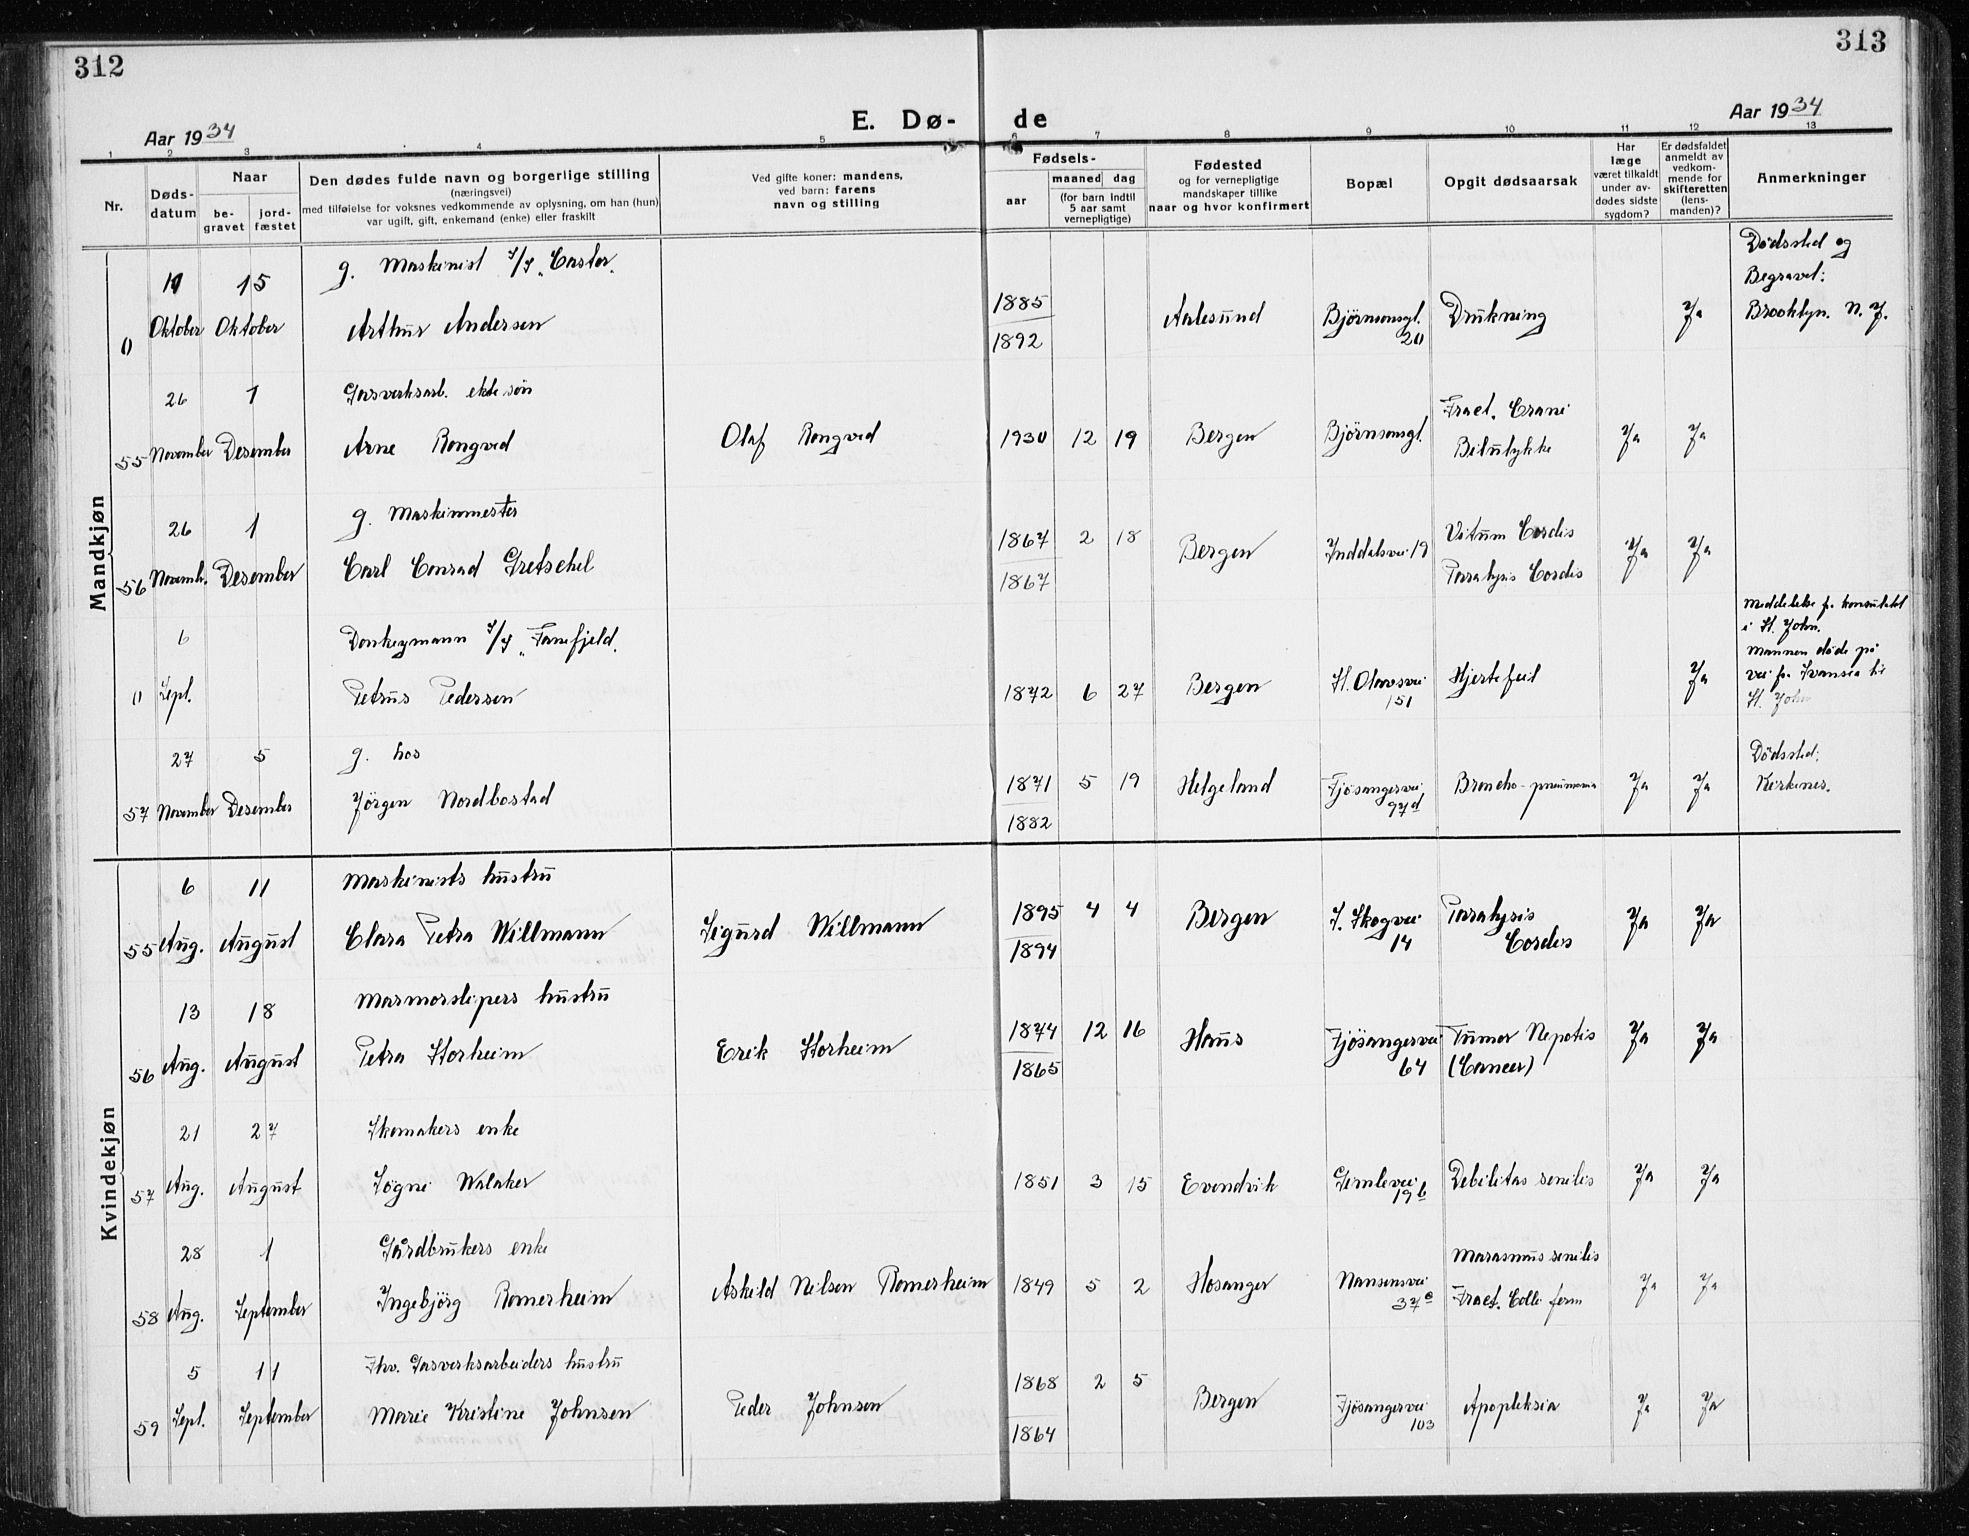 312
313
Aar 1934
E. Dø-
de
Aar 1934
1 2 3 4 5 6 7 8 9 10 11 12 13
Nr.
Døds-
datum
Naar
be-
gravet
jord-
fæstet
Den dødes fulde navn og borgerlige stilling
(næringsvei)
med tilføielse for voksnes vedkommende av oplysning, om han (hun)
var ugift, gift, enkemand (enke) eller fraskilt
Ved gifte koner: mandens,
ved barn: farens
navn og stilling
Fødsels-
aar
maaned dag
(for barn indtil
5 aar samt
vernepligtige)
Fødested
og for vernepligtige
mandskaper tillike
naar og hvor konfirmert
Bopæl
Opgit dødsaarsak
Har
læge
været tilkaldt
under av-
dødes sidste
sygdom?
Er dødsfaldet
anmeldt av
vedkom-
mende for
skifteretten
(lens-
manden)?
Anmerkninger
Mandkjøn
g. Maskinist S/S "Castor"
Dødssted og
Begravet:
11 15 1885
0 Oktober Oktober Arthur Andersen Aalesund Bjørnsonsgt. Drukning Ja Brooklyn. N. Y.
1892 20
26 1 Gasverksarb. ekte søn Fract. Crani
55 November Desember Arne Rongved Olaf Rongved 1930 12 19 Bergen Bjørnsonsgt. Bilulykke Ja Ja
26 1 g. Maskinmester 1867 2 18 Vitum Cordis
56 Novemb. Desember Carl Conrad Gretschel Bergen Inddalsvei 19 Paralysis Cordis Ja Ja
1867
6 Donkeymann S/S "Fanefjeld"
Meddelelse fr. konsulatet
i St. John.
Mannen døde på
0 Sept. Petrus Pedersen 1872 6 27 Bergen St. Olavsvei Hjertefeil Ja vei fr. Svansea til
151 St. John
27 5 g. hos Dødssted:
57 November Desember Jörgen Nordbostad 1871 5 19 Helgeland Fjösangervei Broncho-pneumonia Ja Ja Kirkenes.
1882 97d
Kvindekjøn
6 11 Maskinists hustru
55 Aug. August Clara Petra Willmann Sigurd Willmann 1895 4 4 Bergen S. Skogvei Paralysis Ja Ja
1894 14 Cordis
13 18 Marmorslipers hustru
56 Aug. August Petra Storheim Erik Storheim 1874 12 16 Haus Fjösangervei Tumor Nepotis Ja Ja
1865 64 (Cancer)
21 27 Skomakers enke
57 Aug. August Sögni Walaker 1851 3 15 Evendvik Gamlevei Debilitas senilis Ja Ja
19b
28 1 Gårdbrukers enke Marasmus senilis
58 Aug. September Ingebjörg Romerheim Askild Nilsen Romerheim 1849 5 2 Hosanger Nansensvei Fract. Colli fem Ja Ja
37c
5 11 Fhv. Gasverksarbeiders hustru 1868 2 5
59 Sept. September Marie Kristine Johnsen Peder Johnsen Bergen Fjösangervei Apopleksia Ja Ja
1864 103